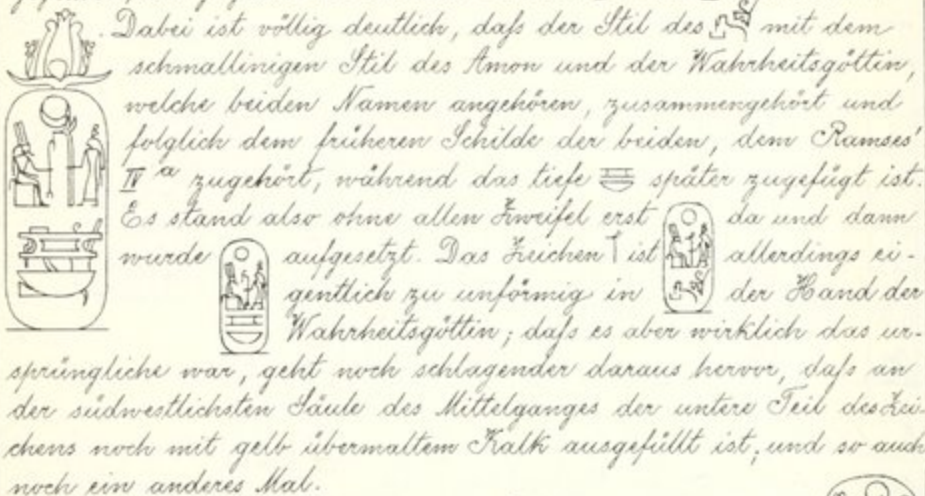 Dabei ist völlig deutlich, daſs der Stil des mit dem
schmallinigen Stil des Amon und der Wahrheitsgöttin,
welche beiden Namen angehören, zusammengehört und
folglich dem früheren Schilde der beiden, dem Ramses'
IV a zugehört, während das tiefe später zugefügt ist.
Es stand also ohne allen Zweifel erst da und dann
wurde aufgesetzt. Das Zeichen ist allerdings ei-
gentlich zu unförmig in der Hand der
Wahrheitsgöttin; daſs es aber wirklich das ur-
sprüngliche war, geht noch schlagender daraus hervor, daſs an
der südwestlichsten Säule des Mittelganges der untere Teil des Zei-
chens noch mit gelb übermaltem Kalk ausgefüllt ist; und so auch
noch ein anderes Mal.